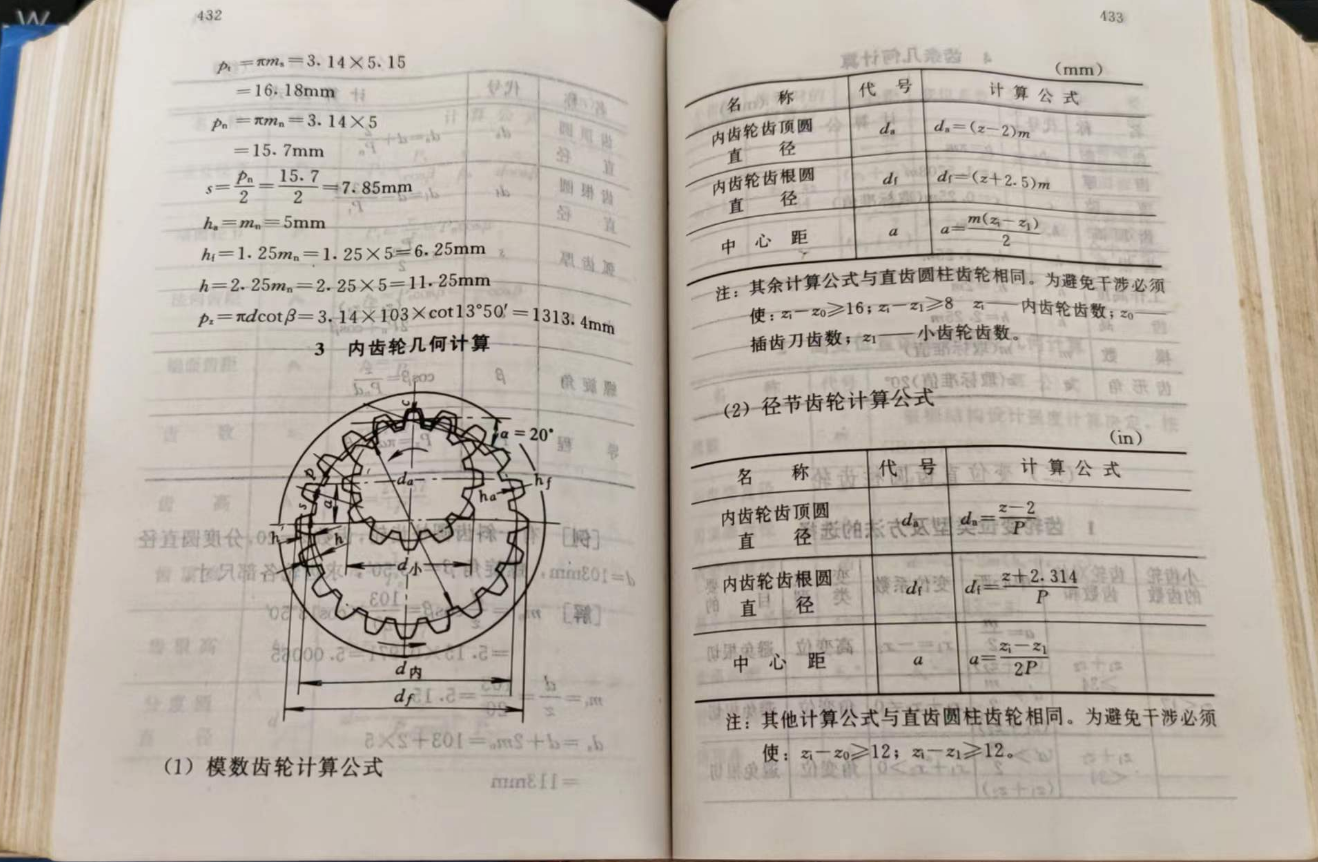 432
pₜ=πmₛ=3.14×5.15
=16.18mm
pₙ=πmₙ=3.14×5
=15.7mm
s=pₙ/2=15.7/2=7.85mm
hₐ=mₙ=5mm
h_f=1.25mₙ=1.25×5=6.25mm
h=2.25mₙ=2.25×5=11.25mm
p_z=πdcotβ=3.14×103×cot13°50′=1313.4mm
3 内齿轮几何计算
c
α=20°
p
s
dₐ
hₐ
h_f
a
h
h
d小
d内
d_f
(1) 模数齿轮计算公式
433
(mm)
名 称 代 号 计 算 公 式
内齿轮齿顶圆
直 径 dₐ dₐ=(z-2)m
内齿轮齿根圆
直 径 d_f d_f=(z+2.5)m
中 心 距 a a=m(zᵢ-z₁)/2
注：其余计算公式与直齿圆柱齿轮相同。为避免干涉必须
使：zᵢ-z₀≥16；zᵢ-z₁≥8 zᵢ——内齿轮齿数；z₀——
插齿刀齿数；z₁——小齿轮齿数。
(2) 径节齿轮计算公式
(in)
名 称 代 号 计 算 公 式
内齿轮齿顶圆
直 径 dₐ dₐ=z-2/P
内齿轮齿根圆
直 径 d_f d_f=z+2.314/P
中 心 距 a a=zᵢ-z₁/2P
注：其他计算公式与直齿圆柱齿轮相同。为避免干涉必须
使：zᵢ-z₀≥12；zᵢ-z₁≥12。